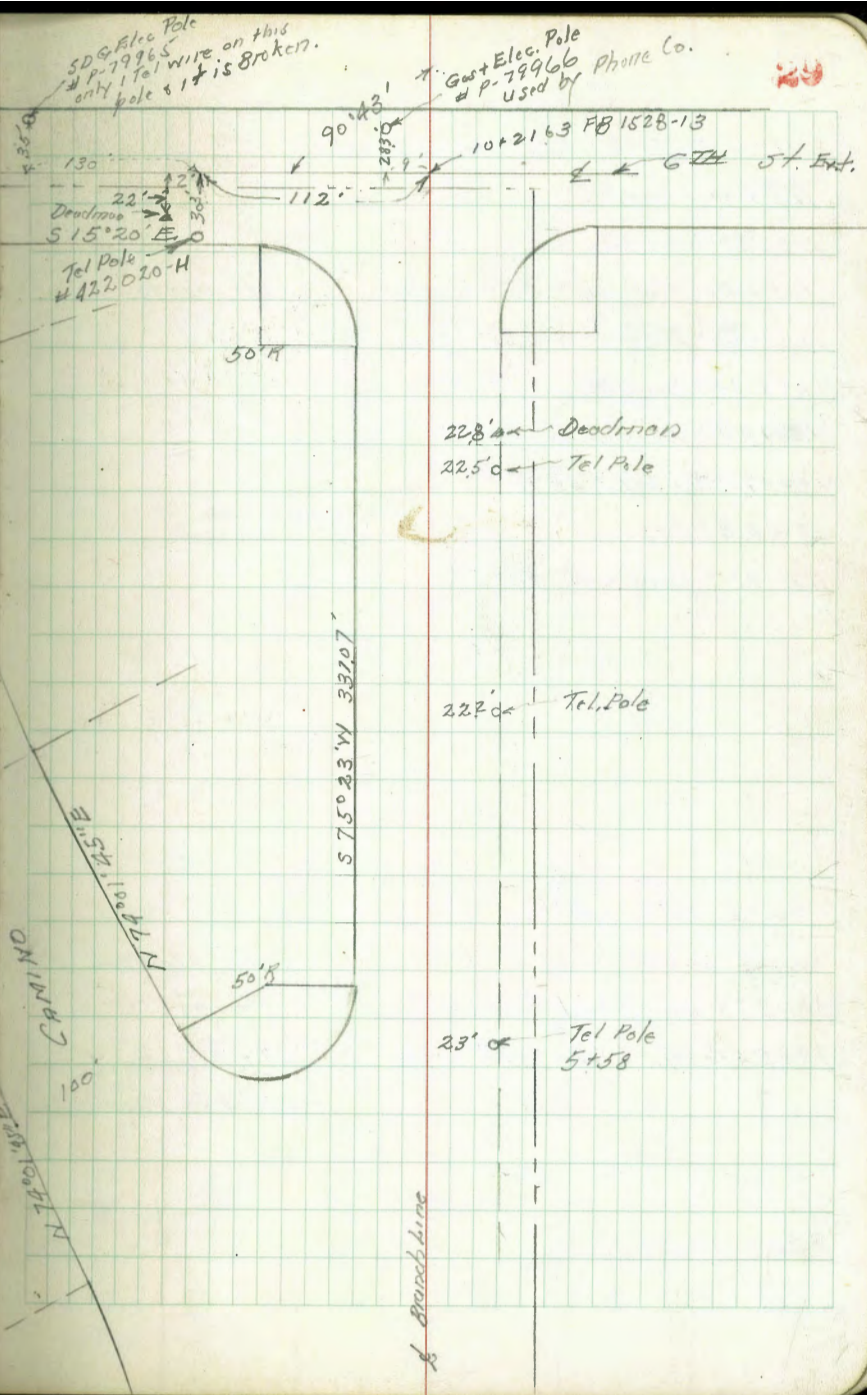 29
SDG Elec Pole
# P-79965
only 1 Tel wire on this
pole & it is Broken.
Gas + Elec. Pole
# P-79966
used by Phone Co.
90°43'
10+21.63 FB 1528-13
℄ 6TH St. Ext.
130'
112'
9'
2'
22'
Deadman
S 15°20' E
Tel Pole
# 422020-H
50'R
22.8' Deadman
22.5' Tel Pole
S 75° 23' W 337.07'
Tel. Pole
N 74°01'45"E
CAMINO
100'
50'R
23' Tel Pole
5+58
N 74°01'45"E
℄ Branch Line